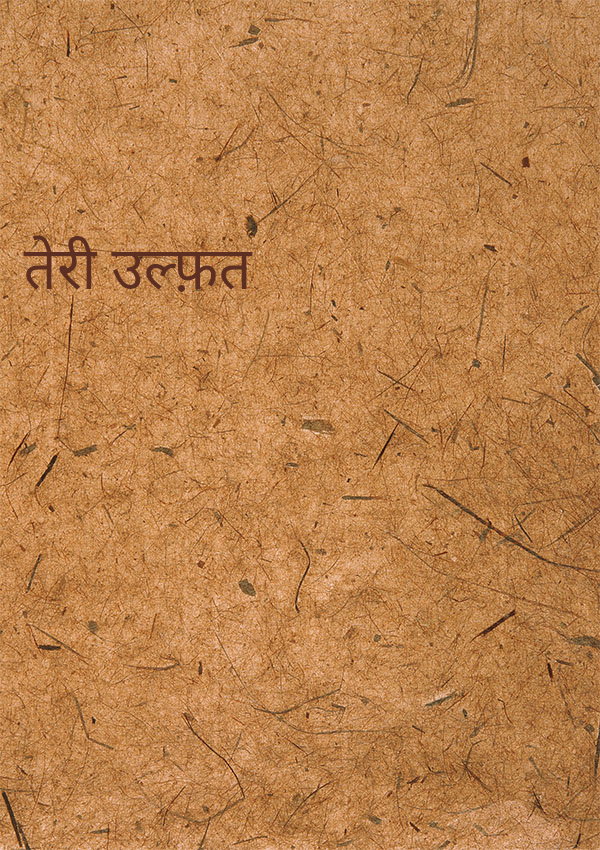 तेरी उल्फ़त